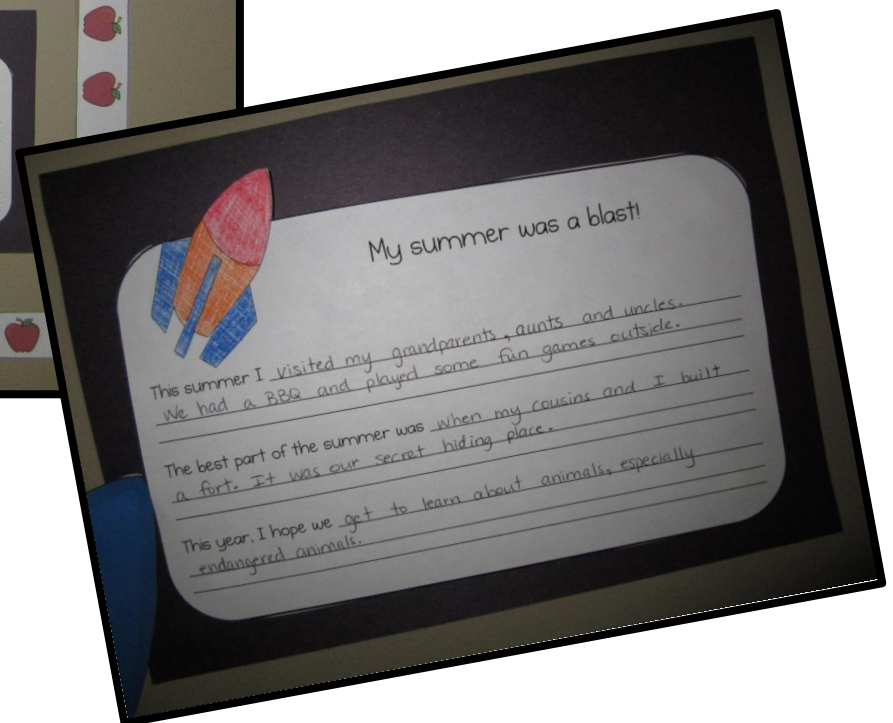 My summer was a blast!
This summer I visited my grandparents, aunts and uncles.
We had a BBQ and played some fun games outside.
The best part of the summer was when my cousins and I built
a fort. It was our secret hiding place.
This year, I hope we get to learn about animals, especially
endangered animals.